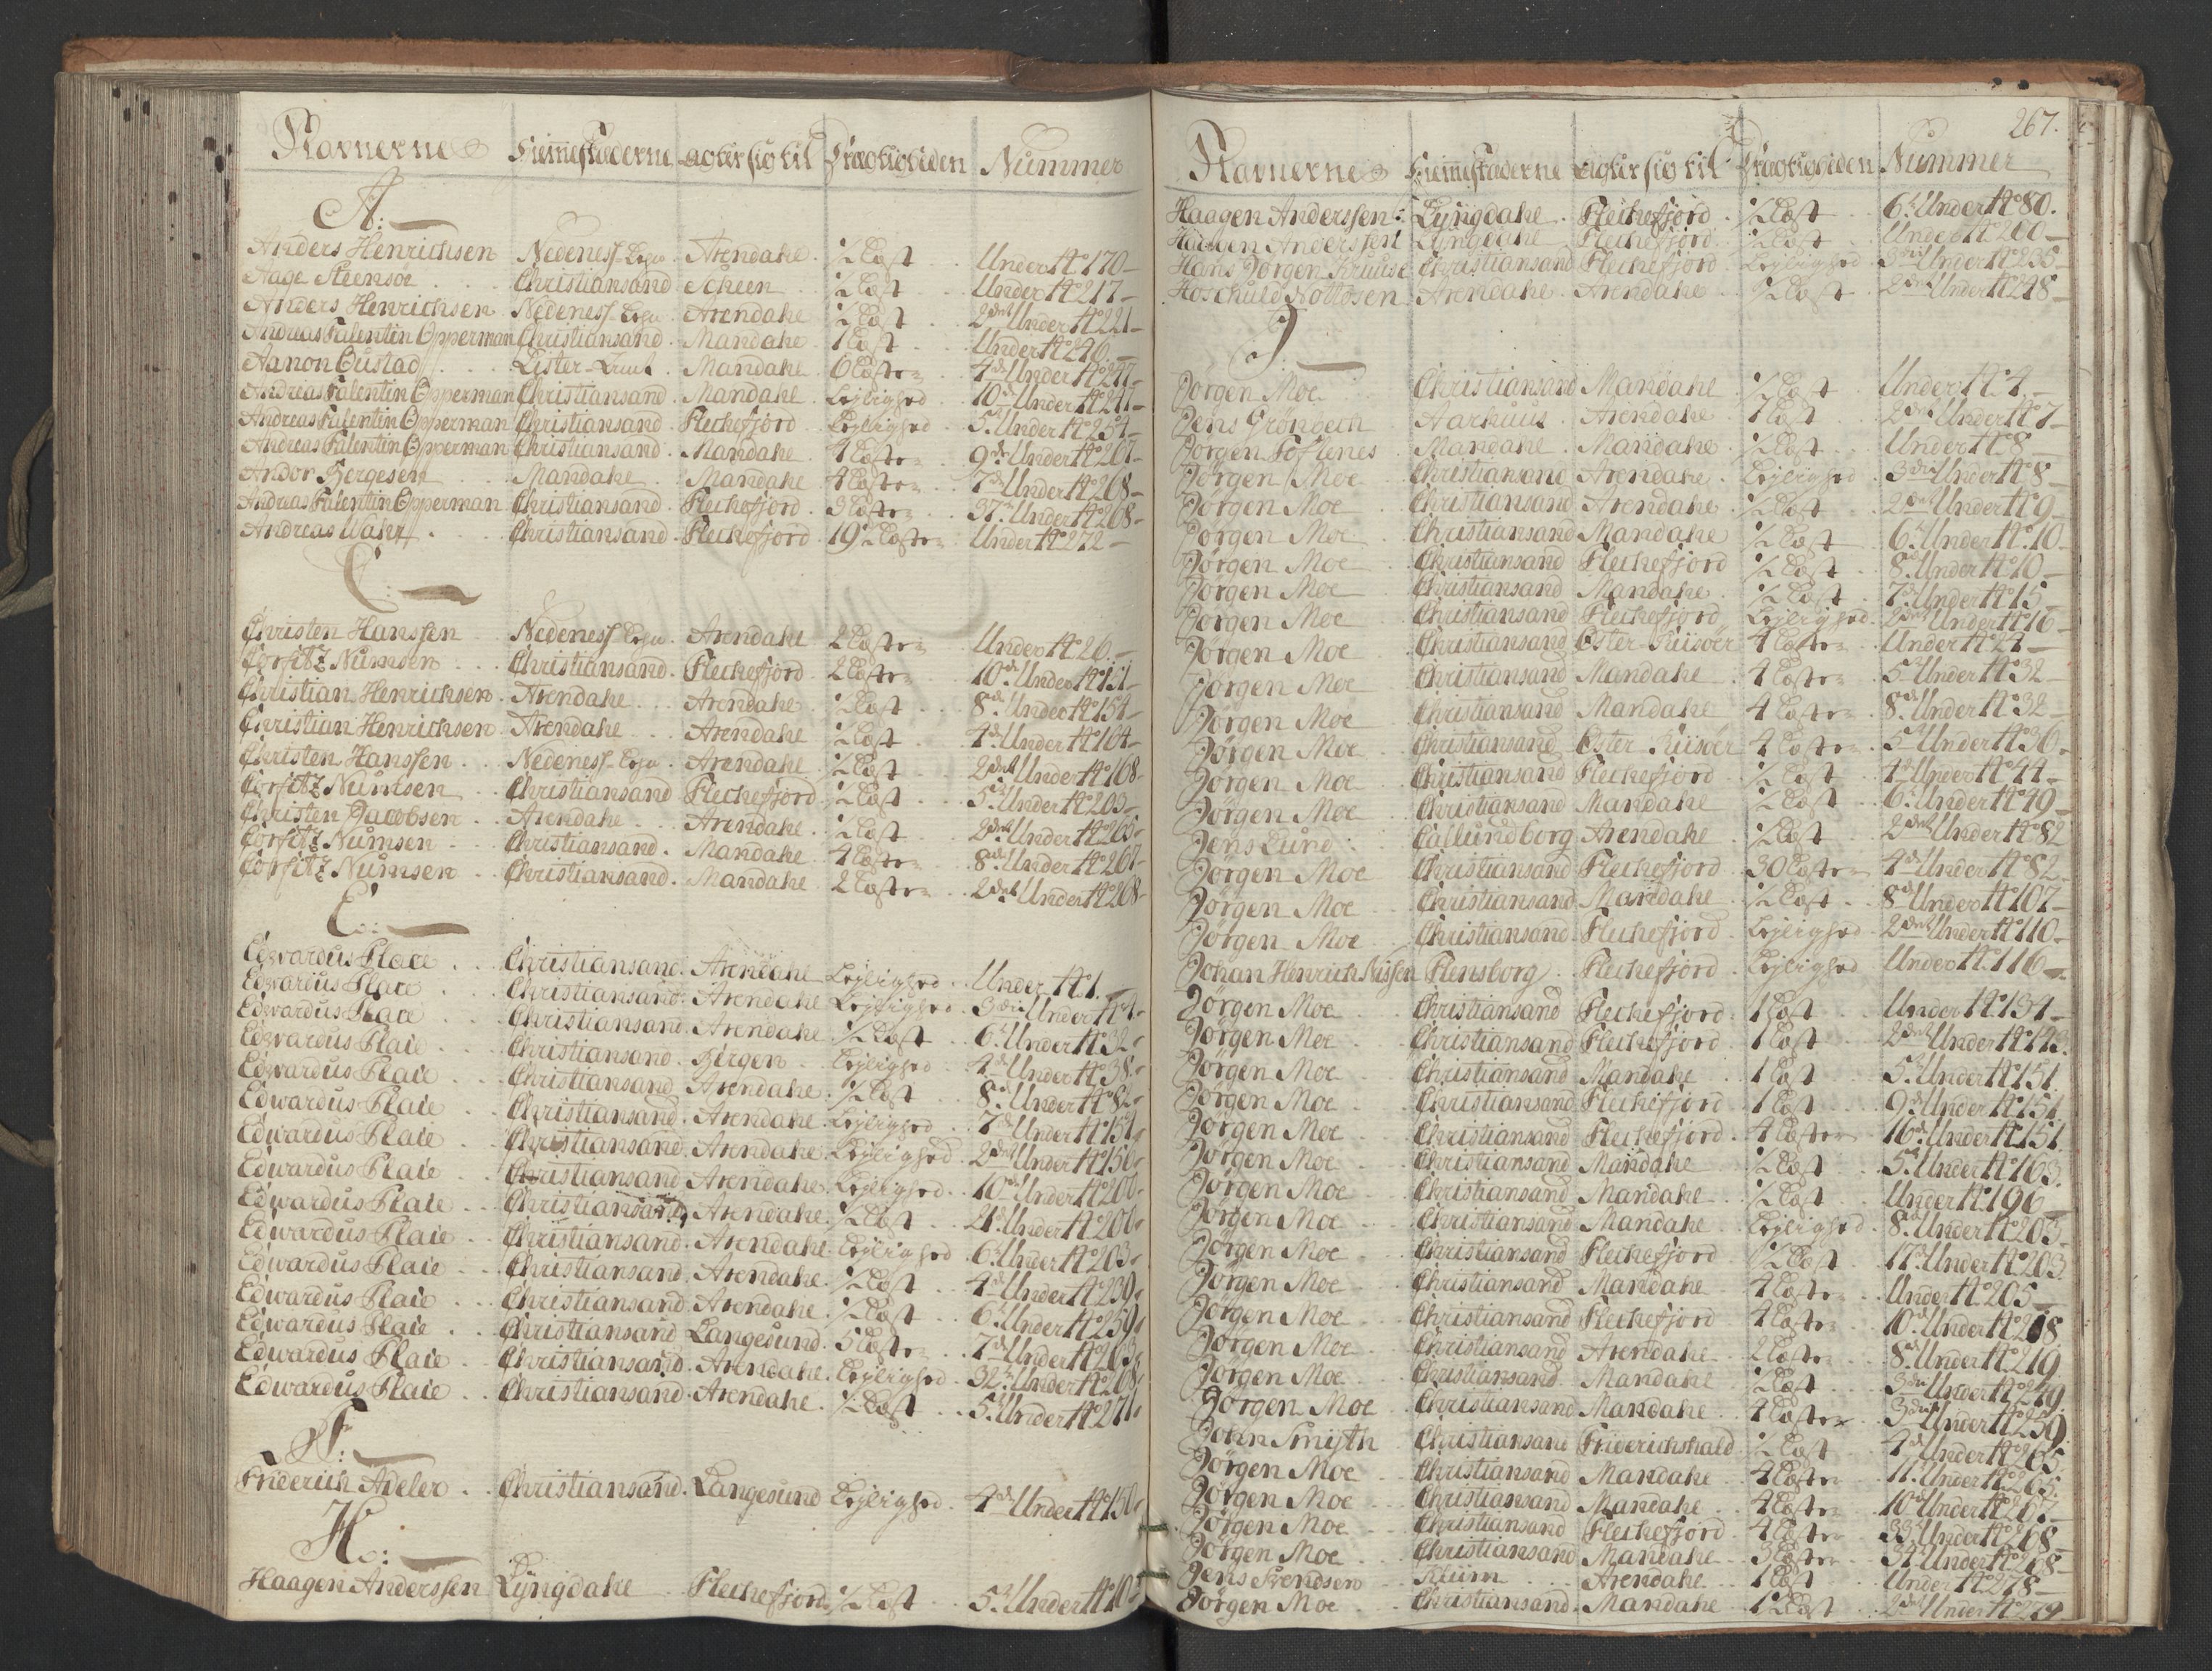 Navnerne Hiemmestæderne agter sig til Drægtigheden Nummer
A:
Anders Henrichsen Nedenes Lehn. Arendahl. ½ Læst Under № 170
Aage Steensøe Christiansand Scheen ½ Læst Under № 217
Anders Henrichsen Nedenes Lehn. Arendahl ½ Læst 2den Under № 221
Andreas Falentin Opperman Christiansand. Mandahl 1 Læst Under № 246.
Aanon Gustad Lister Amt. Mandahl 6 Læster 4de Under № 247
Andreas Falentin Opperman Christiansand. Mandahl. Lejlighed 10de Under № 241
Andreas Falentin Opperman Christiansand. Flechefjord Lejlighed 5te Under № 254
Andreas Falentin Opperman Christiansand. Mandahl. 4 Læster 9de Under № 267
Andor Bergesen Mandahl Mandahl 4 Læster 7de Under № 268
Andreas Falentin Opperman Christiansand. Flechefjord. 3 Læster 37te Under № 268
Andreas Wahl Christiansand. Flechefjord 19½ Læster Under № 272
C:
Christen Hanssen Nedenes Lehn. Arendahl 2 Læster Under № 26.
Corfitz Numsen Christiansand. Flechefjord. 2 Læster 10de Under № 151
Christian Henrichsen. Arendahl Arendahl. ½ Læst 8de Under № 154
Christian Henrichsen. Arendahl Arendahl ½ Læst 4de Under № 164
Christen Hanssen Nedenes Lehn. Arendahl. ½ Læst 2den Under № 168
Corfitz Numsen Christiansand Flechefjord ½ Læst 5te Under № 203
Christen Jacobsen Arendahl Arendahl. ½ Læst 2den Under № 265
Corfitz Numsen Christiansand. Mandahl. 4 Læster 8de Under № 267
Corfitz Numsen Christiansand. Mandahl 2 Læster 2den Under № 268
E:
Edwardus Place Christiansand. Arendahl Lejlighed Under № 1.
Edwardus Place Christiansand. Arendahl Lejlighed 3die Under № 4
Edwardus Place Christiansand. Arendahl ½ Læst 6te Under № 32
Edwardus Place Christiansand. Bergen Lejlighed 4de Under № 38
Edwardus Place Christiansand. Arendahl. ½ Læst 8de Under № 82
Edwardus Place Christiansand. Arendahl. Lejlighed 7de Under № 151
Edwardus Place Christiansand. Arendahl. Lejlighed 2den Under № 156
Edwardus Place Christiansand. Arendahl. Lejlighed 10de Under № 200
Edwardus Place Christiansand. Arendahl. ½ Læst 21de Under № 200
Edwardus Place Christiansand. Arendahl. Lejlighed 6te Under № 203
Edwardus Place Christiansand. Arendahl. ½ Læst 4de Under № 239
Edwardus Place Christiansand. Arendahl. ½ Læst 6te Under № 259
Edwardus Place Christiansand Langesund. 5 Læster 7de Under № 263
Edwardus Place Christiansand. Arendahl. Lejlighed 32te Under № 268
Edwardus Place Christiansand. Arendahl. ½ Læst 5te Under № 271
F:
Friderich Adeler Christiansand. Langesund Lejlighed 4de Under № 150
H:
Haagen Anderssen Lyngdahl Flechefjord. ½ Læst 5te Under № 10
267.
Navnerne Hiemmestæderne agter sig til Drægtigheden Nummer
Haagen Anderssen Lyngdahl. Flechefjord. ½ Læst 6te Under № 80.
Haagen Anderssen Lyngdahl Flechefjord. ½ Læst Under № 200
Hans Jørgen Kruuse Christiansand Flechefjord. Lejlighed 3die Under № 236
Hoschuld Nottosen Arendahl. Arendahl ½ Læst 2den Under № 248
J:
Jørgen Moe Christiansand Mandahl ½ Læst Under № 4
Jens Grønbech Aarhuus Arendahl 1 Læst 2den Under № 7
Jørgen Mandahl. Mandahl. ½ Læst Under № 8
Jørgen Moe Christiansand. Arendahl. Lejlighed 3die Under № 8
Jørgen Moe Christiansand Arendahl. ½ Læst 2den Under № 9
Jørgen Moe Christiansand Mandahl ½ Læst 6te Under № 10
Jørgen Moe Christiansand Flechefjord ½ Læst 8de Under № 10
Jørgen Moe Christiansand Mandahl. ½ Læst 7de Under № 15
Jørgen Moe Christiansand Flechefjord Lejlighed. 2den Under № 16
Jørgen Moe Christiansand Øster-Riisøer 4 Læster Under № 24
Jørgen Moe Christiansand Mandahl. 4 Læster 5te Under № 32
Jørgen Moe Christiansand Mandahl 4 Læster 8de Under № 32
Jørgen Moe Christiansand Øster-Riisøer 4 Læster 5te Under № 36
Jørgen Moe Christiansand Flechefjord. ½ Læst 4de Under № 44
Jørgen Moe Christiansand Mandahl ½ Læst 6te Under № 49
Jens Lund Callundborg Arendahl ½ Læst 2den Under № 82
Jørgen Moe Christiansand Flechefjord 30 Læster 4de Under № 82
Jørgen Moe Christiansand Mandahl. ½ Læst 8de Under № 107
Jørgen Moe Christiansand Flechefjord Lejlighed 2den Under № 110
Johan Henrich Nissen Flensborg Flechefjord. Lejlighed Under № 116
Jørgen Moe Christiansand Flechefjord 1 Læst Under № 134
Jørgen Moe Christiansand Flechefjord 1 Læst 2den Under № 143.
Jørgen Moe Christiansand Mandahl 1 Læst 5te Under № 151.
Jørgen Moe Christiansand Flechefjord 1 Læst 9de Under № 151.
Jørgen Moe Christiansand Flechefjord. 4 Læster 16de Under № 151
Jørgen Moe Christiansand Mandahl ½ Læst 5te Under № 163.
Jørgen Moe Christiansand Mandahl ½ Læst Under № 196
Jørgen Moe Christiansand Mandahl Lejlighed 8de Under № 203
Jørgen Moe Christiansand Flechefjord ½ Læst 17de Under № 203
Jørgen Moe Christiansand Mandahl 4 Læster Under № 205
Jørgen Moe Christiansand Flechefjord 4 Læster 10de Under № 218
Jørgen Moe Christiansand Arendahl 2 Læster 8de Under № 219
Jørgen Moe Christiansand Mandahl ½ Læst 3die Under № 249
Jørgen Moe Christiansand Mandahl 4 Læster 3die Under № 259
John Smijth Christiansand Friderichshald ½ Læst 4de Under № 265
Jørgen Moe Christiansand Mandahl 4 Læster 11te Under № 265.
Jørgen Moe Christiansand Mandahl 4 Læster 10de Under № 267
Jørgen Moe Christiansand Flechefjord 4 Læster 33te Under № 268
Jørgen Moe Christiansand Mandahl 3 Læster 34 Under № 268
Jens Svendsen Arendahl 1 Læst Under № 278
Jørgen Moe Christiansand. Mandahl 1 Læst 2den Under № 279